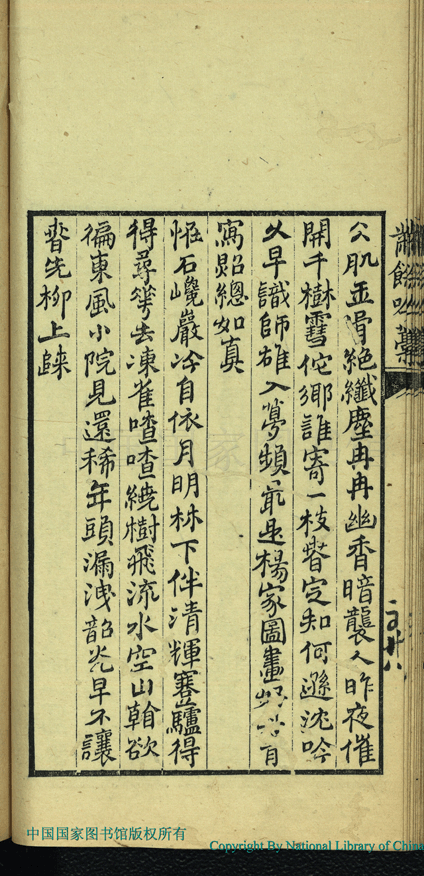 餘吟藁
仌肌玉滑絕纖塵冉冉幽香暗襲人昨夜催
開千樹雪佗鄉誰寄一枝萅定知何遜沈吟
久早識師雄入夢頻冣是楊家圖畫
寫總如真
怪石巉巖冷自依月明林下伴清輝蹇驢得
得尋華去凍雀喳喳繞樹飛流水空山翰欲
徧東風小院見還稀年頭漏洩韶光早不讓
萅先柳上歸
中国国家图书馆版权所有
Copyright By National Library of China